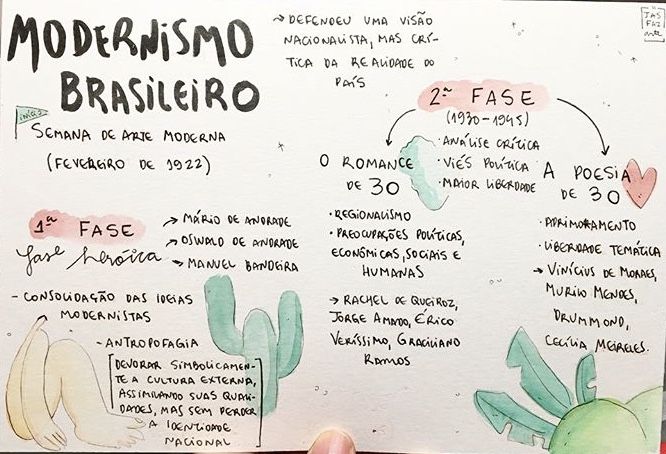 MODERNISMO
BRASILEIRO
início
SEMANA DE ARTE MODERNA
(FEVEREIRO DE 1922)
→ DEFENDEU UMA VISÃO
NACIONALISTA, MAS CRÍ-
TICA DA REALIDADE DO
PAÍS
JAS
FAZ
arte
1ª FASE
fase heroica
→ MÁRIO DE ANDRADE
→ OSWALD DE ANDRADE
→ MANUEL BANDEIRA
- CONSOLIDAÇÃO DAS IDEIAS
MODERNISTAS
- ANTROPOFAGIA
[DEVORAR SIMBOLICAMEN-
TE A CULTURA EXTERNA,
ASSIMILANDO SUAS QUALI-
DADES, MAS SEM PERDER
A IDENTIDADE
NACIONAL]
2ª FASE
(1930-1945)
· ANÁLISE CRÍTICA
· VIÉS POLÍTICA
· MAIOR LIBERDADE
O ROMANCE
DE 30
· REGIONALISMO
· PREOCUPAÇÕES POLÍTICAS,
ECONÔMICAS, SOCIAIS E
HUMANAS
→ RACHEL DE QUEIROZ,
JORGE AMADO, ÉRICO
VERÍSSIMO, GRACILIANO
RAMOS
A POESIA
DE 30
· APRIMORAMENTO
· LIBERDADE TEMÁTICA
→ VINÍCIUS DE MORAES,
MURILO MENDES,
DRUMMOND,
CECÍLIA MEIRELES.